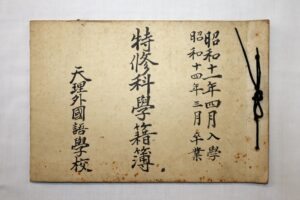 昭和十一年四月入學
昭和十四年三月卒業
特修科學籍簿
天理外國語學校